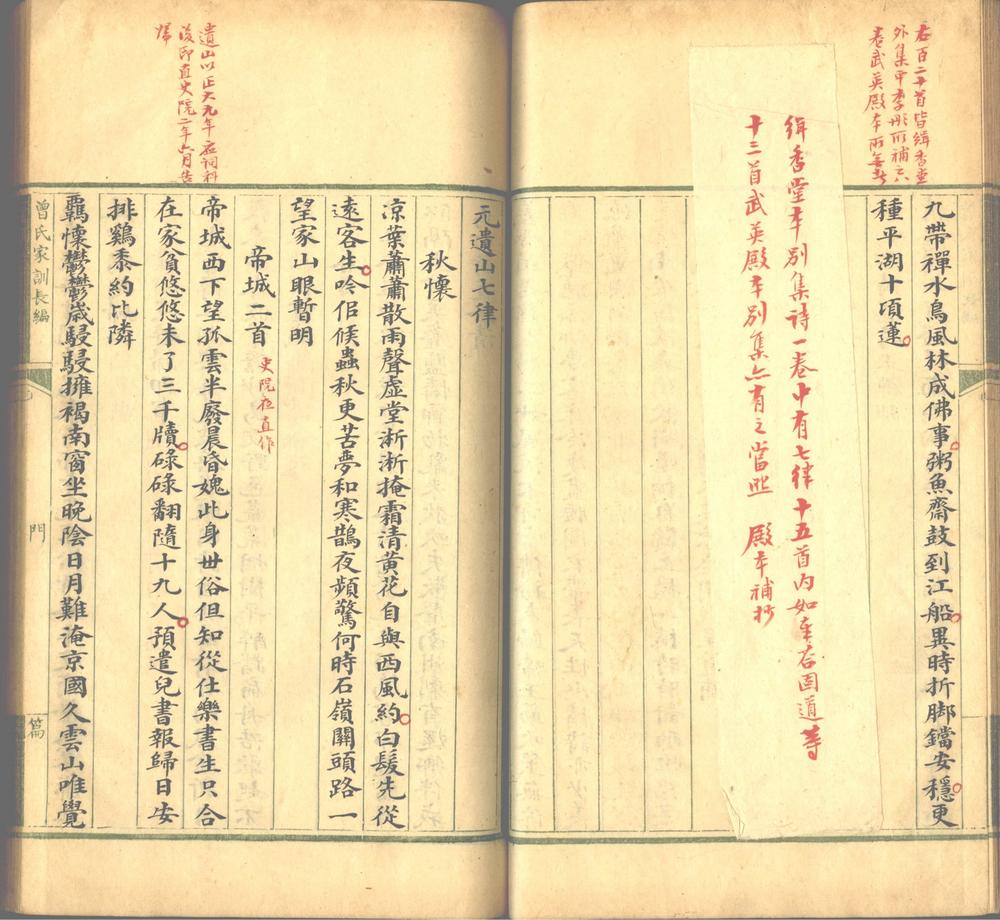 右百二十首皆緝香堂
外集中李彤所補六
卷武英殿本所無者
九帶禪水鳥風林成佛事粥魚齋鼓到江船異時折脚鐺安穩更
種平湖十頃蓮
緝香堂本別集詩一卷中有七律十五首內如奉答固道等
十三首武英殿本別集亦有之當照 殿本補抄
遺山以正大元年應詞科
後即直史院二年六月告
歸
元遺山七律
秋懷
凉葉蕭蕭散雨聲虛堂淅淅掩霜清黃花自與西風約白髮先從
遠客生吟似候蟲秋更苦夢和寒鵲夜頻驚何時石嶺關頭路一
望家山眼暫明
帝城二首 史院夜直作
帝城西下望孤雲半廢晨昏媿此身世俗但知從仕樂書生只合
在家貧悠悠未了三千牘碌碌翻隨十九人預遣兒書報歸日安
排鷄黍約比隣
羈懷鬱鬱歲駸駸擁褐南窗坐晚陰日月難淹京國久雲山唯覺
曾氏家訓長編
門
篇